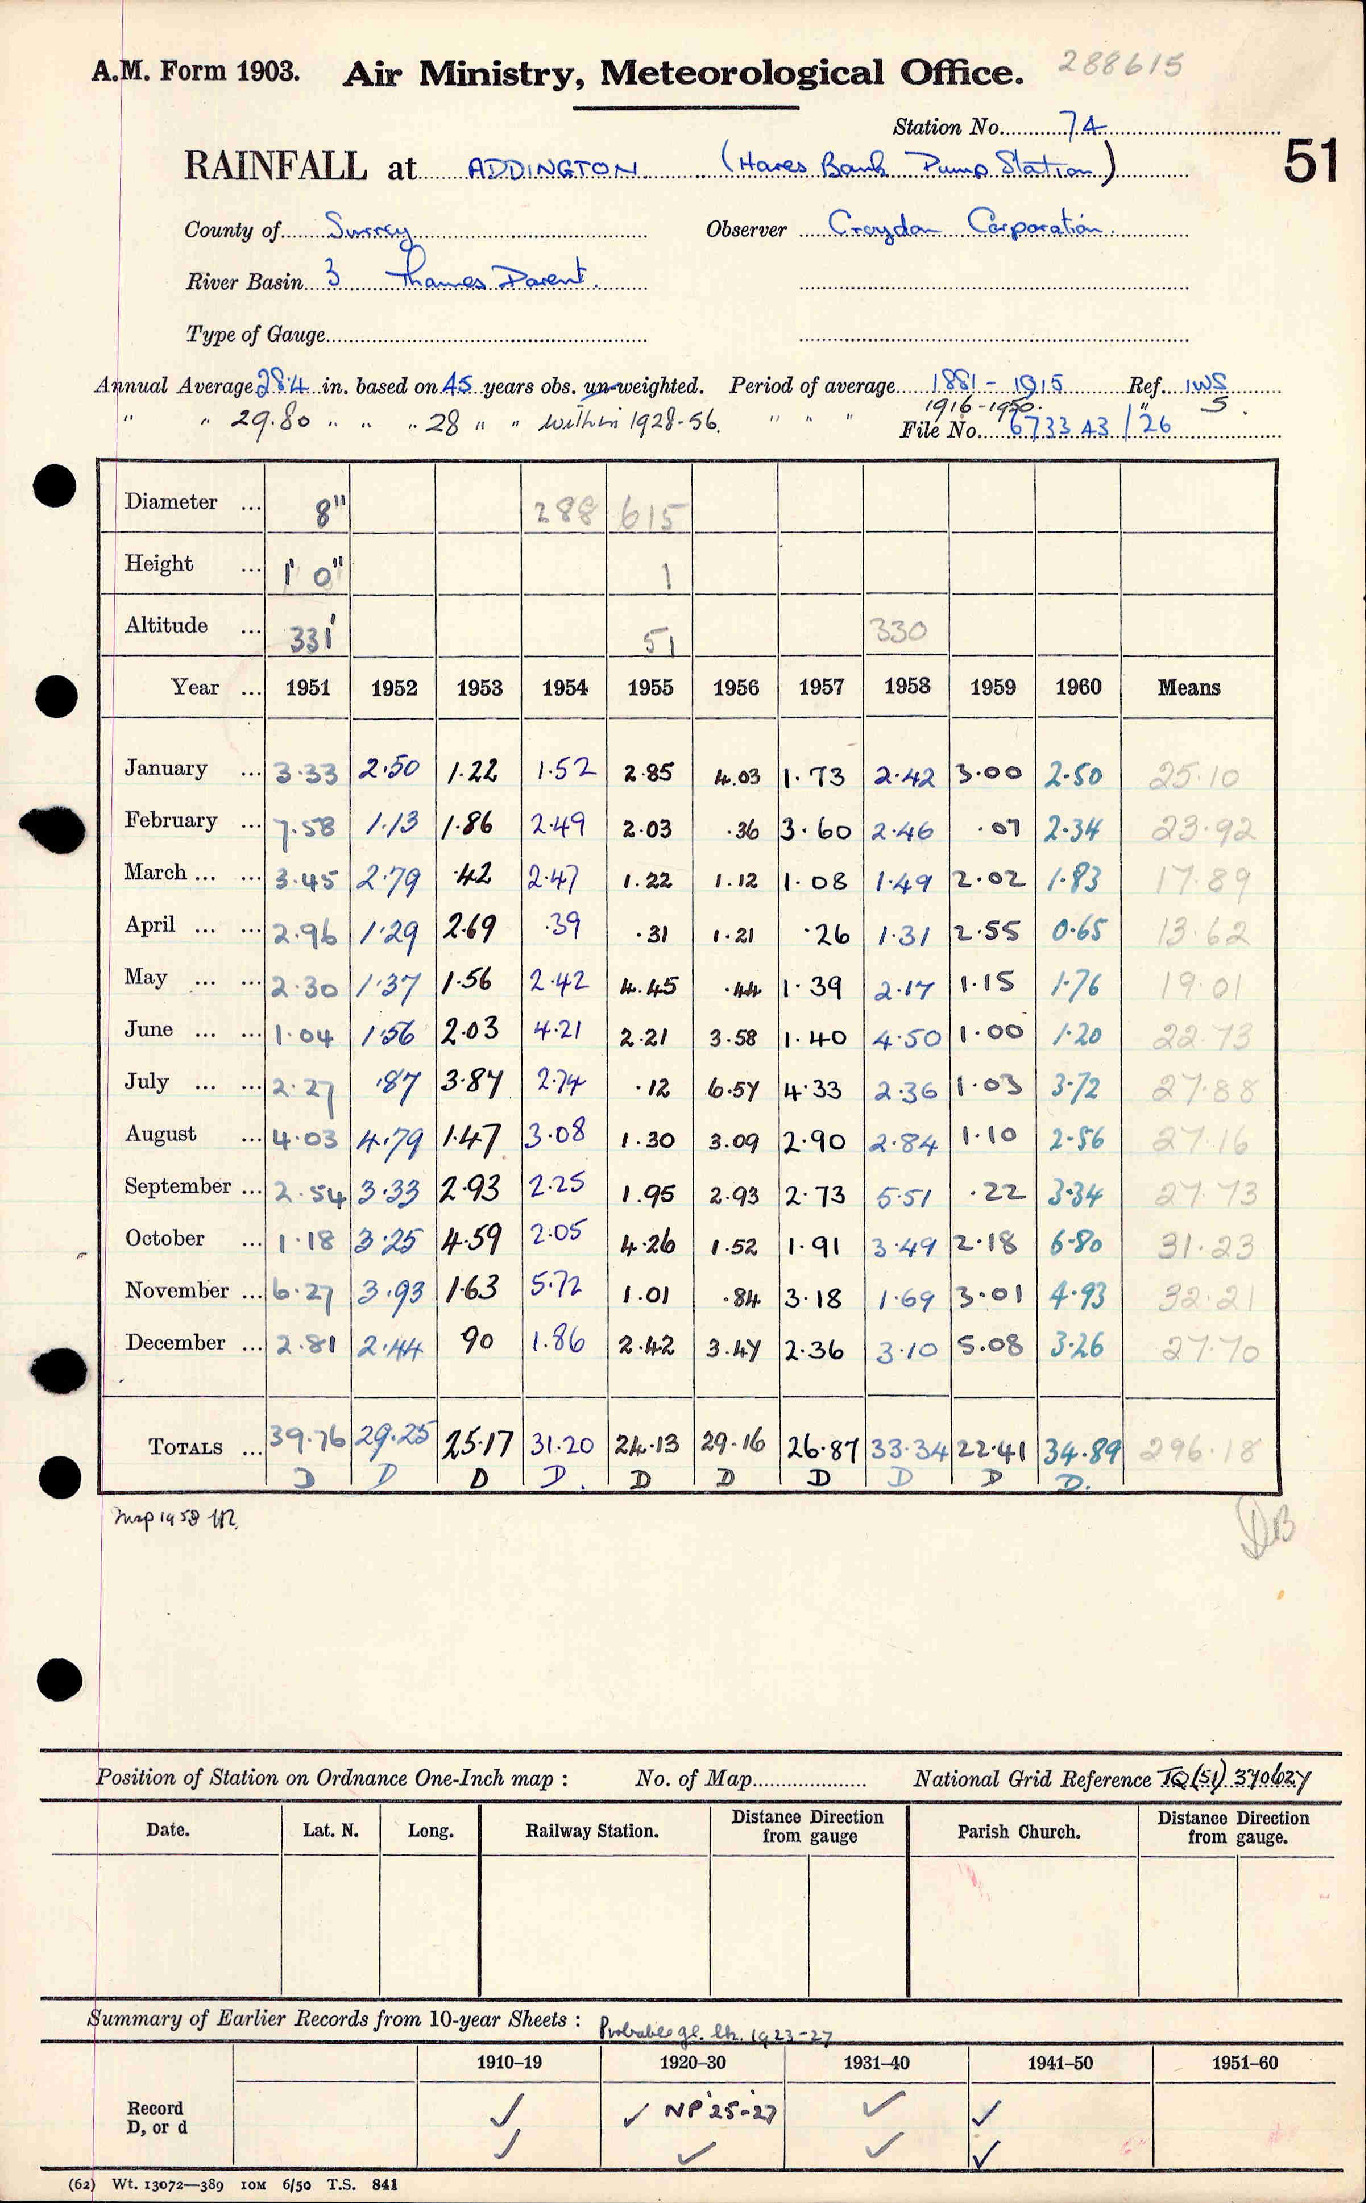 A.M. Form 1903. Air Ministry, Meteorological Office. 288615
Station No. 74
51
RAINFALL at ADDINGTON (Hares Bank Pump Station)
County of Surrey Observer Croydon Corporation.
River Basin 3 Thames Darent.
Type of Gauge
Annual Average 28.4 in. based on 45 years obs. un-weighted. Period of average 1881 - 1915 Ref. IWS
" " 29.80 " " " 28 " " within 1928-56. " " " 1916-1950. " S.
File No. 6733 A3 / 26
Diameter ... 8" 288 615
Height ... 1' 0" 1
Altitude ... 331' 51 330
Year ... 1951 1952 1953 1954 1955 1956 1957 1958 1959 1960 Means
January ... 3.33 2.50 1.22 1.52 2.85 4.03 1.73 2.42 3.00 2.50 25.10
February ... 7.58 1.13 1.86 2.49 2.03 .36 3.60 2.46 .07 2.34 23.92
March ... ... 3.45 2.79 .42 2.47 1.22 1.12 1.08 1.49 2.02 1.83 17.89
April ... ... 2.96 1.29 2.69 .39 .31 1.21 .26 1.31 2.55 0.65 13.62
May ... ... 2.30 1.37 1.56 2.42 4.45 .44 1.39 2.17 1.15 1.76 19.01
June ... ... 1.04 1.56 2.03 4.21 2.21 3.58 1.40 4.50 1.00 1.20 22.73
July ... ... 2.27 .87 3.87 2.74 .12 6.57 4.33 2.36 1.03 3.72 27.88
August ... 4.03 4.79 1.47 3.08 1.30 3.09 2.90 2.84 1.10 2.56 27.16
September ... 2.54 3.33 2.93 2.25 1.95 2.93 2.73 5.51 .22 3.34 27.73
October ... 1.18 3.25 4.59 2.05 4.26 1.52 1.91 3.49 2.18 6.80 31.23
November ... 6.27 3.93 1.63 5.72 1.01 .84 3.18 1.69 3.01 4.93 32.21
December ... 2.81 2.44 90 1.86 2.42 3.47 2.36 3.10 5.08 3.26 27.70
TOTALS ... 39.76 29.25 25.17 31.20 24.13 29.16 26.87 33.34 22.41 34.89 296.18
D D D D. D D D D D D.
Map 1958
DB
Position of Station on Ordnance One-Inch map : No. of Map National Grid Reference TQ (51) 370627
Date. Lat. N. Long. Railway Station. Distance Direction from gauge Parish Church. Distance Direction from gauge.
Summary of Earlier Records from 10-year Sheets : Probable 1923-27
1910–19 1920–30 1931–40 1941–50 1951–60
Record ✓ ✓ NP '25-'27 ✓ ✓
D, or d ✓ ✓ ✓ ✓
(62) Wt. 13072—389 10M 6/50 T.S. 841